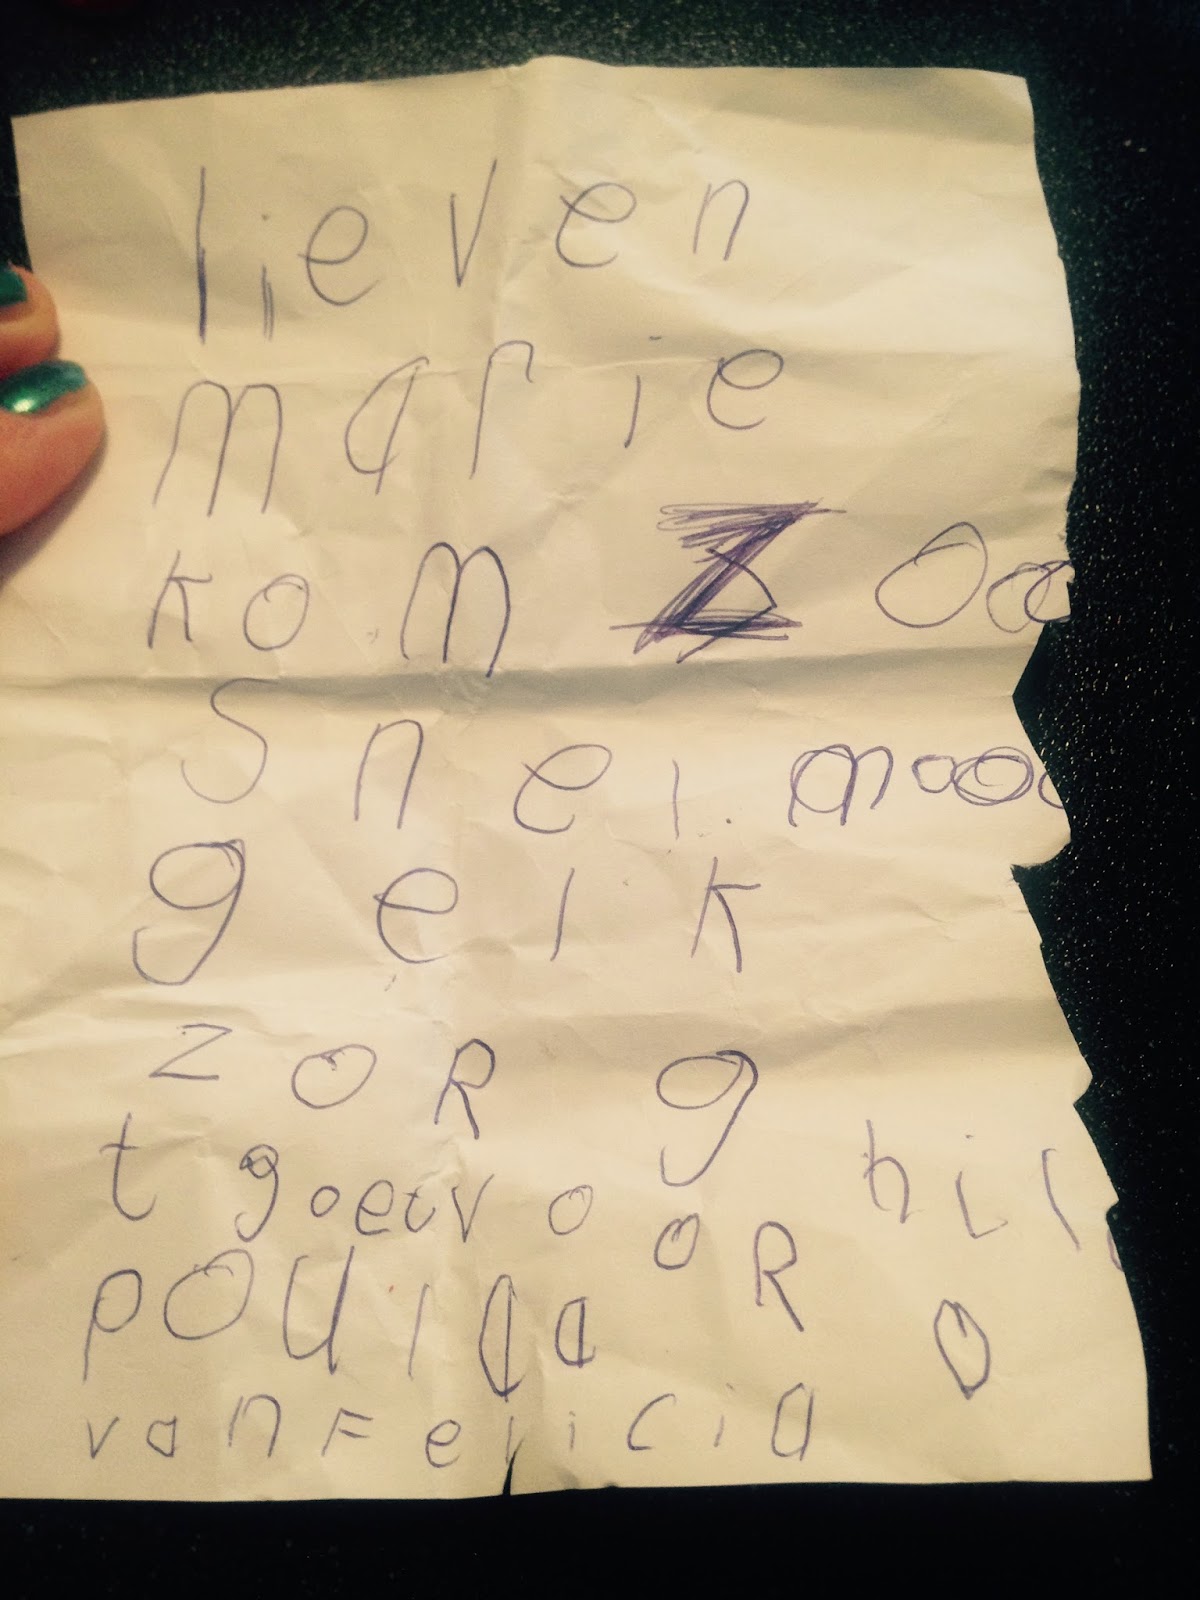 lieven
marie
kom Z ooo
snel. moo
gelk
zoRg
t goetvo oR hil
poulaa o
van Felicia